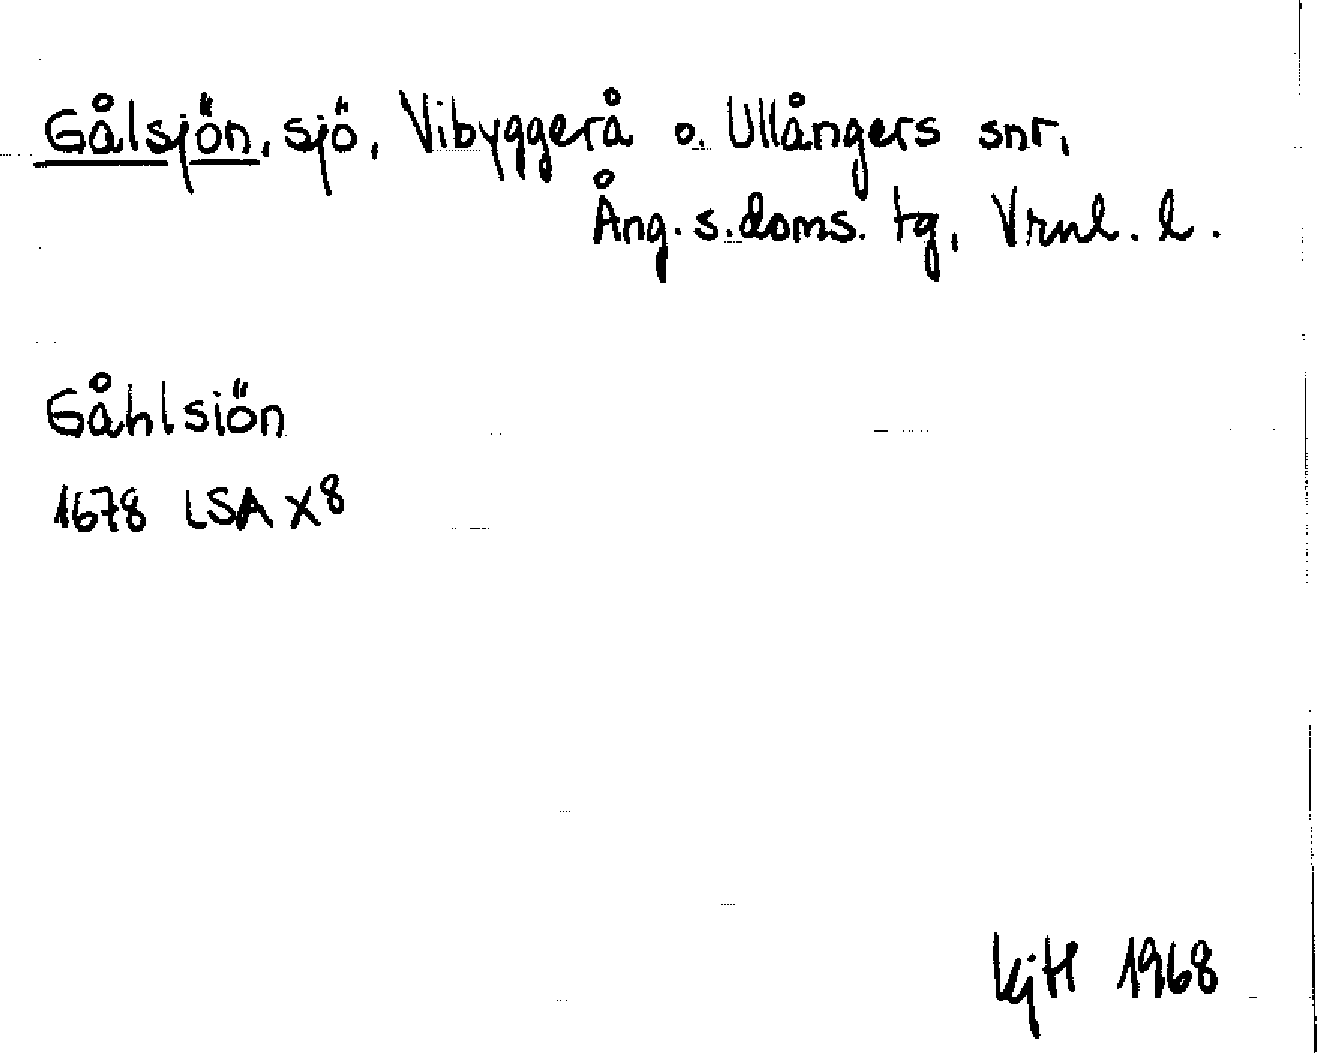 Gålsjön, sjö, Vibyggerå o. Ullångers snr,
Ång. s. doms. tg, Vrnl. l.
Gåhlsiön
1678 LSA X8
KjH 1968